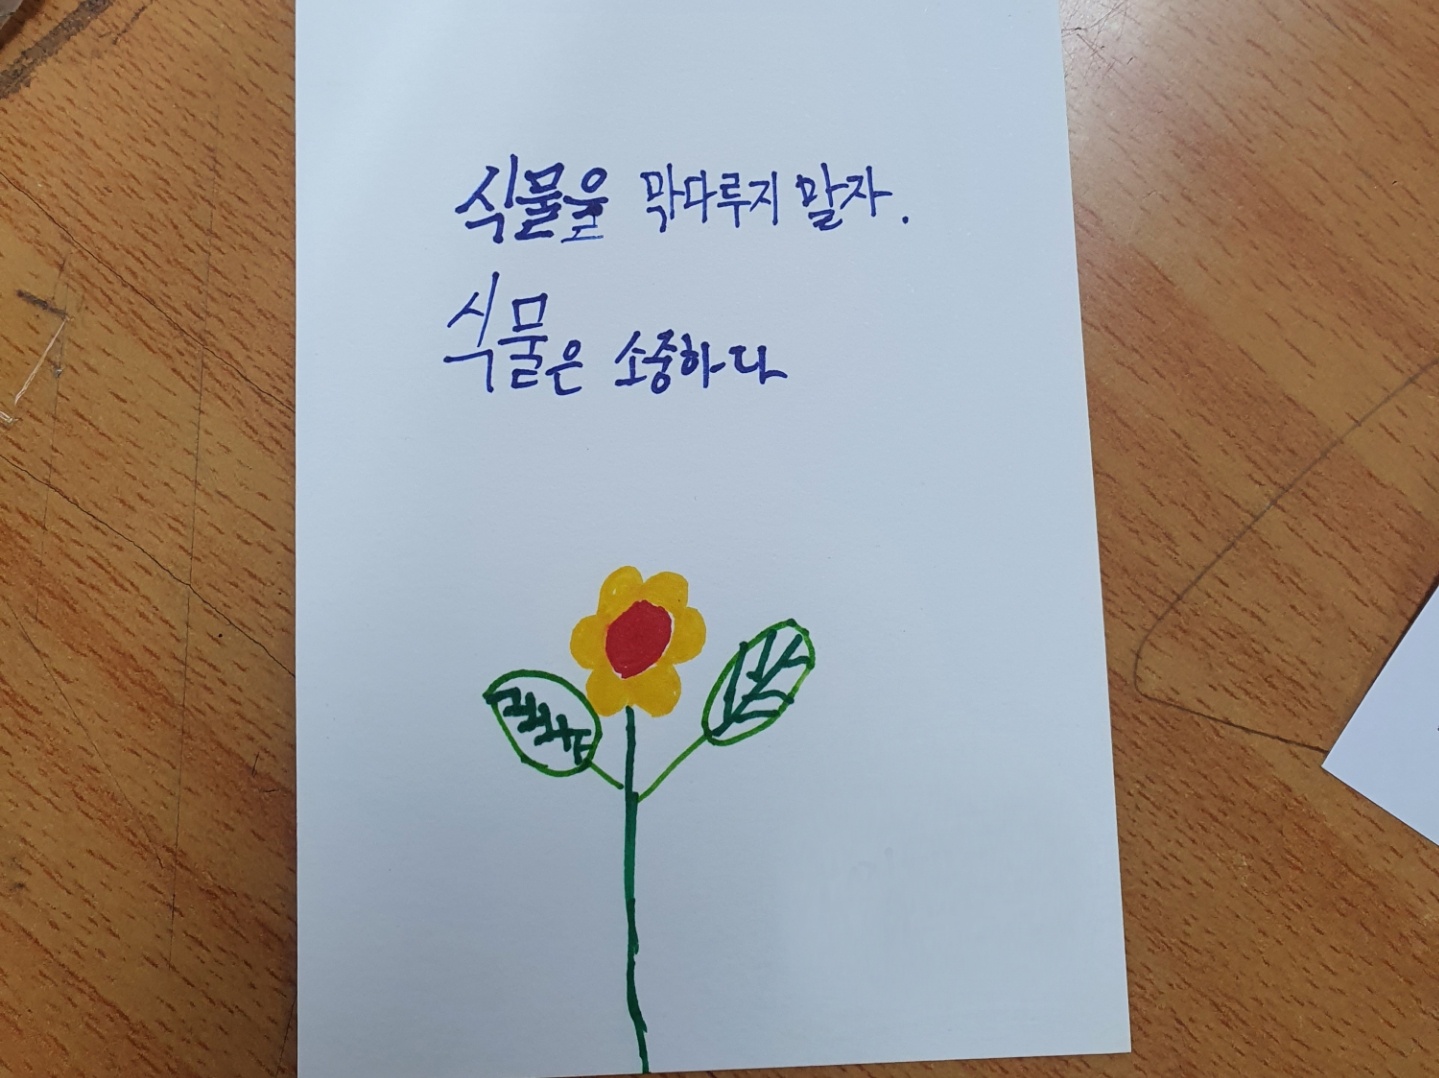 식물을 막다루지 말자.
식물은 소중하다